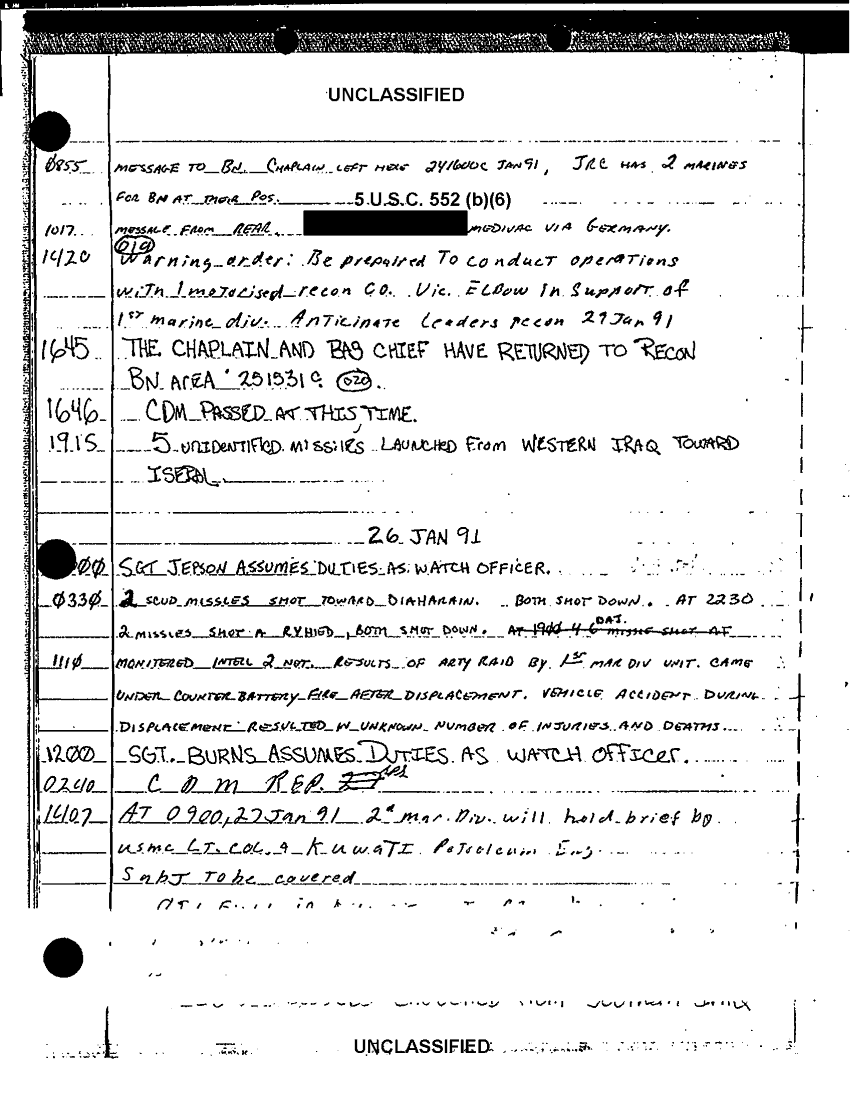 UNCLASSIFIED
0855 MESSAGE TO BN. CHAPLAIN LEFT HERE 241600C JAN 91, JRC HAS 2 MARINES
FOR BN AT THEIR POS. 5 U.S.C. 552 (b)(6)
1017 MESSAGE FROM REAR. MEDIVAC VIA GERMANY.
019
1420 Warning order: Be prepaired To conduct operations
with 1 motorised recon CO. Vic. ELbow In Support of
1ST marine div. Anticipate Leaders recon 29 Jan 91
1645 THE CHAPLAIN AND BAS CHIEF HAVE RETURNED TO RECON
BN AREA 251531C 020.
1646 CDM PASSED AT THIS TIME.
1915 5 UNIDENTIFIED MISSILES LAUNCHED From WESTERN IRAQ TOWARD
26 JAN 91
00 SGT JEPSON ASSUMES DUTIES AS WATCH OFFICER.
0330 2 SCUD MISSLES SHOT TOWARD DIAHARAIN. BOTH SHOT DOWN. AT 2230
2 MISSLES SHOT A RYHIED, BOTH SHOT DOWN. AT 1900
1110 MONITERED INTELL 2 NOT. RESULTS OF ARTY RAID BY 1ST MAR DIV UNIT. CAME
UNDER COUNTER BATTERY FIRE AFTER DISPLACEMENT. VEHICLE ACCIDENT DURING
DISPLACEMENT RESULTED IN UNKNOWN NUMBER OF INJURIES AND DEATHS.
1200 SGT. BURNS ASSUMES DUTIES AS WATCH OFFICER.
0240 CDM REP.
1407 AT 0900, 27 Jan 91 2d mar. Div. will hold brief by
usmc LT. COL. & KUWATI Petroleum Eng.
Subj To be covered
UNCLASSIFIED